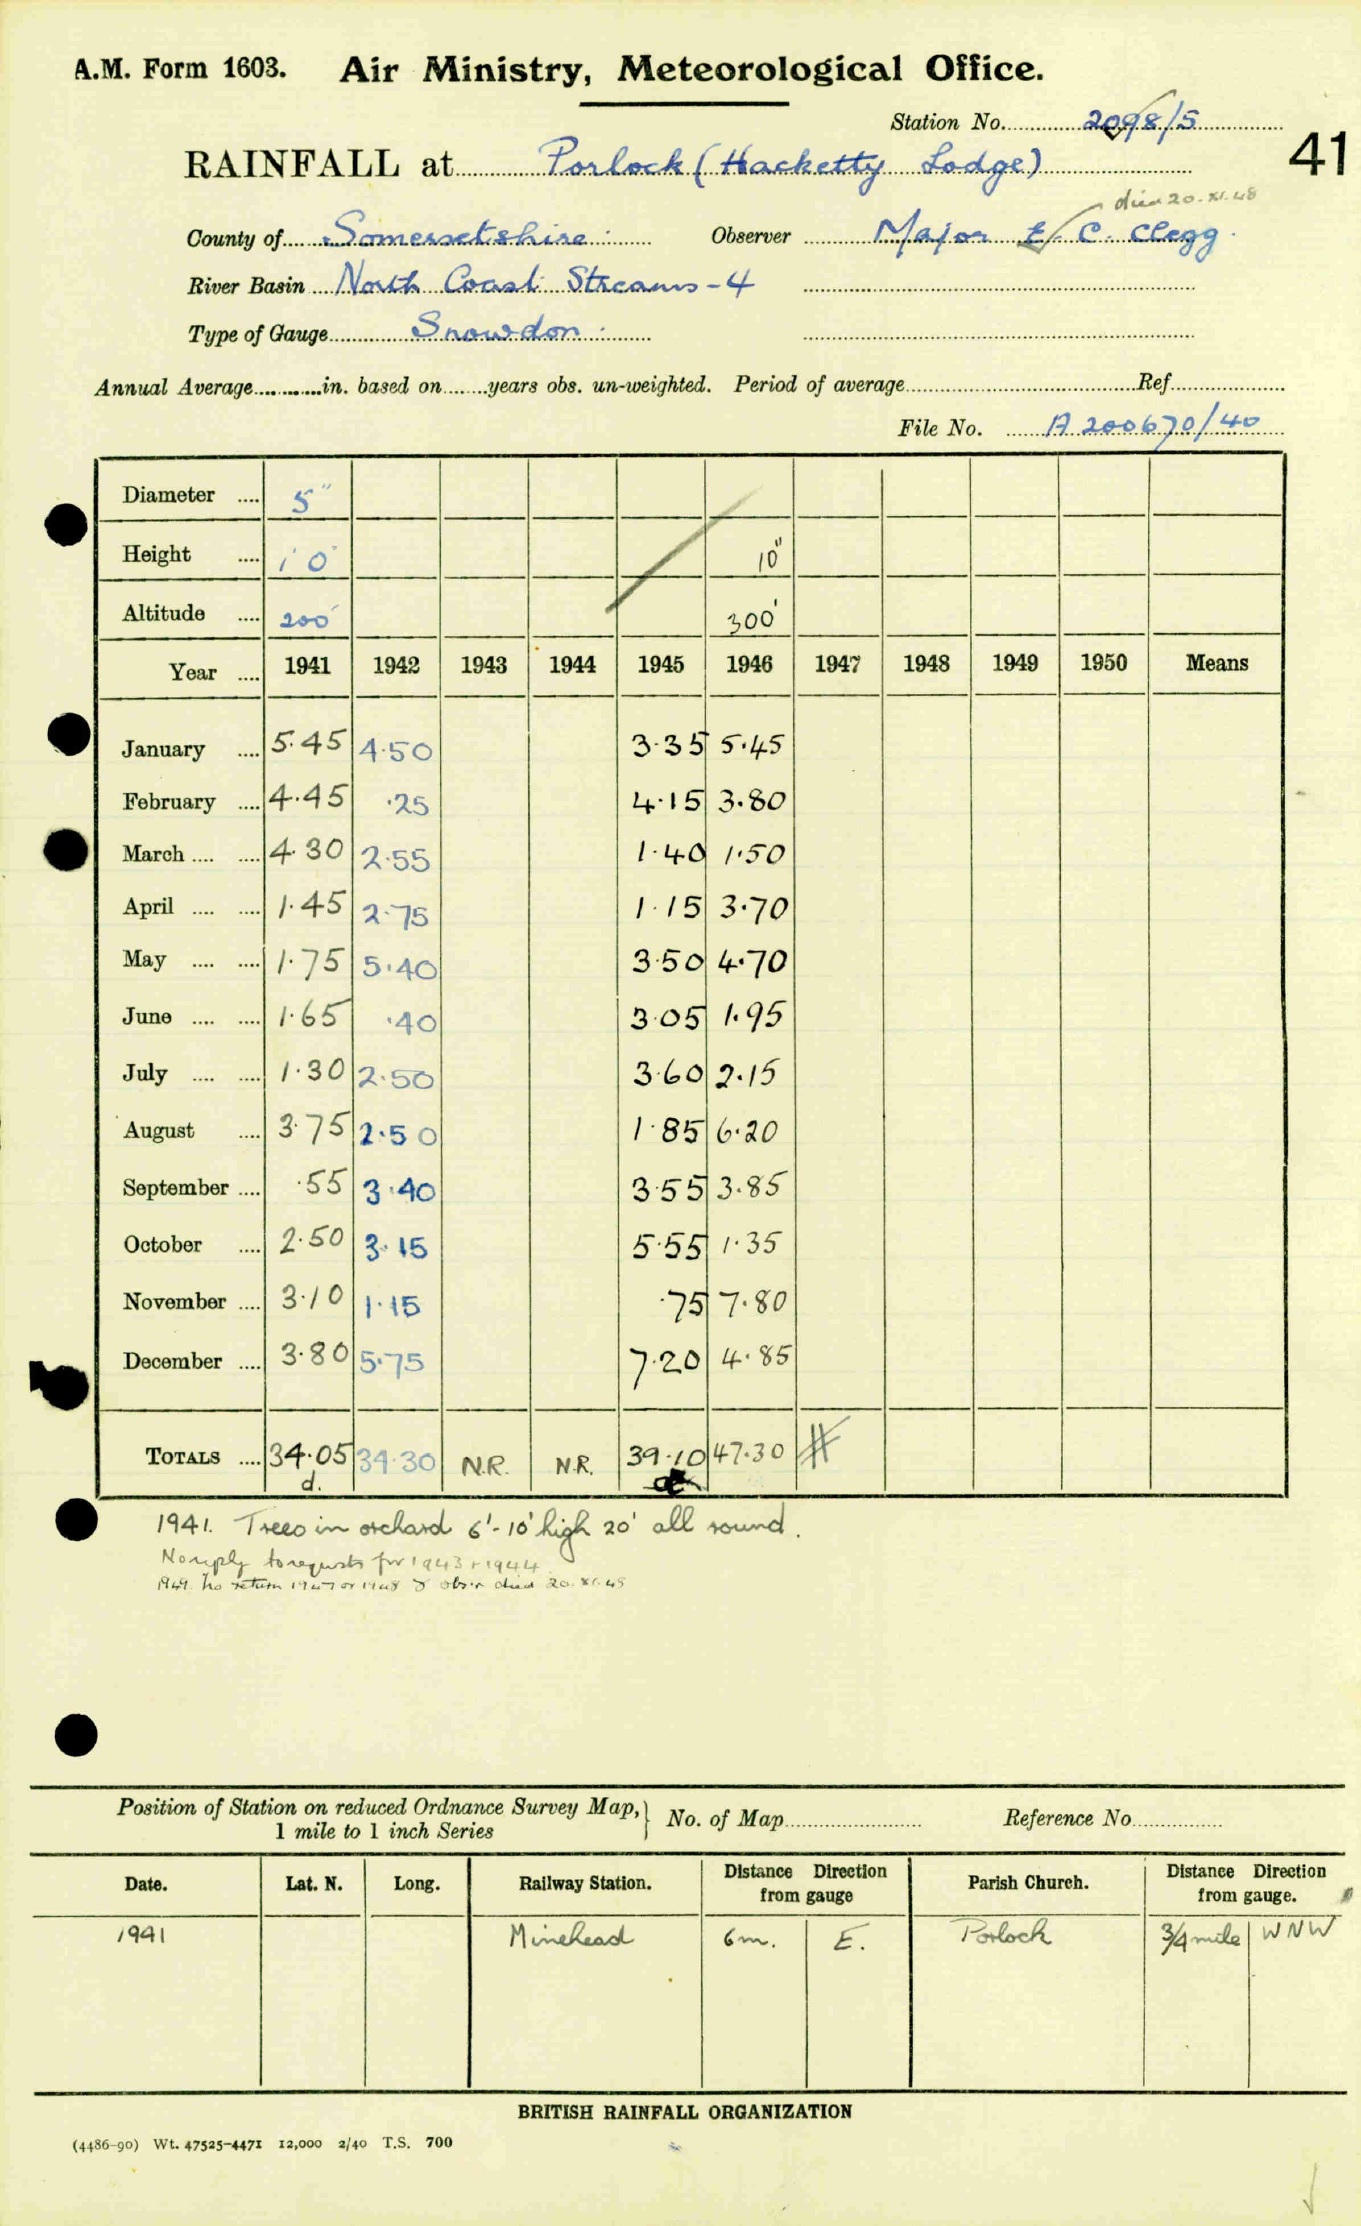 A.M. Form 1603. Air Ministry, Meteorological Office.
Station No. 2098/5
41
RAINFALL at Porlock (Hacketty Lodge)
died 20.XI.48
County of Somersetshire Observer Major E. C. Clegg.
River Basin North Coast Streams - 4
Type of Gauge Snowdon
Annual Average in. based on years obs. un-weighted. Period of average Ref.
File No. A 200670/40
Diameter .... 5"
Height .... 1' 0" 10"
Altitude .... 200' 300'
Year .... 1941 1942 1943 1944 1945 1946 1947 1948 1949 1950 Means
January .... 5.45 4.50 3.35 5.45
February .... 4.45 .25 4.15 3.80
March .... .... 4.30 2.55 1.40 1.50
April .... .... 1.45 2.75 1.15 3.70
May .... .... 1.75 5.40 3.50 4.70
June .... .... 1.65 .40 3.05 1.95
July .... .... 1.30 2.50 3.60 2.15
August .... 3.75 2.50 1.85 6.20
September .... .55 3.40 3.55 3.85
October .... 2.50 3.15 5.55 1.35
November .... 3.10 1.15 .75 7.80
December .... 3.80 5.75 7.20 4.85
TOTALS .... 34.05 34.30 N.R. N.R. 39.10 47.30
d.
1941. Trees in orchard 6'-10' high 20' all round.
No reply to requests for 1943 + 1944
1949. No return 1947 or 1948 obsr. died 20.XI.48
Position of Station on reduced Ordnance Survey Map,} No. of Map Reference No.
1 mile to 1 inch Series
Date. Lat. N. Long. Railway Station. Distance Direction from gauge Parish Church. Distance Direction from gauge.
1941 Minehead 6m. E. Porlock 3/4 mile WNW
BRITISH RAINFALL ORGANIZATION
(4486-90) Wt. 47525-4471 12,000 2/40 T.S. 700